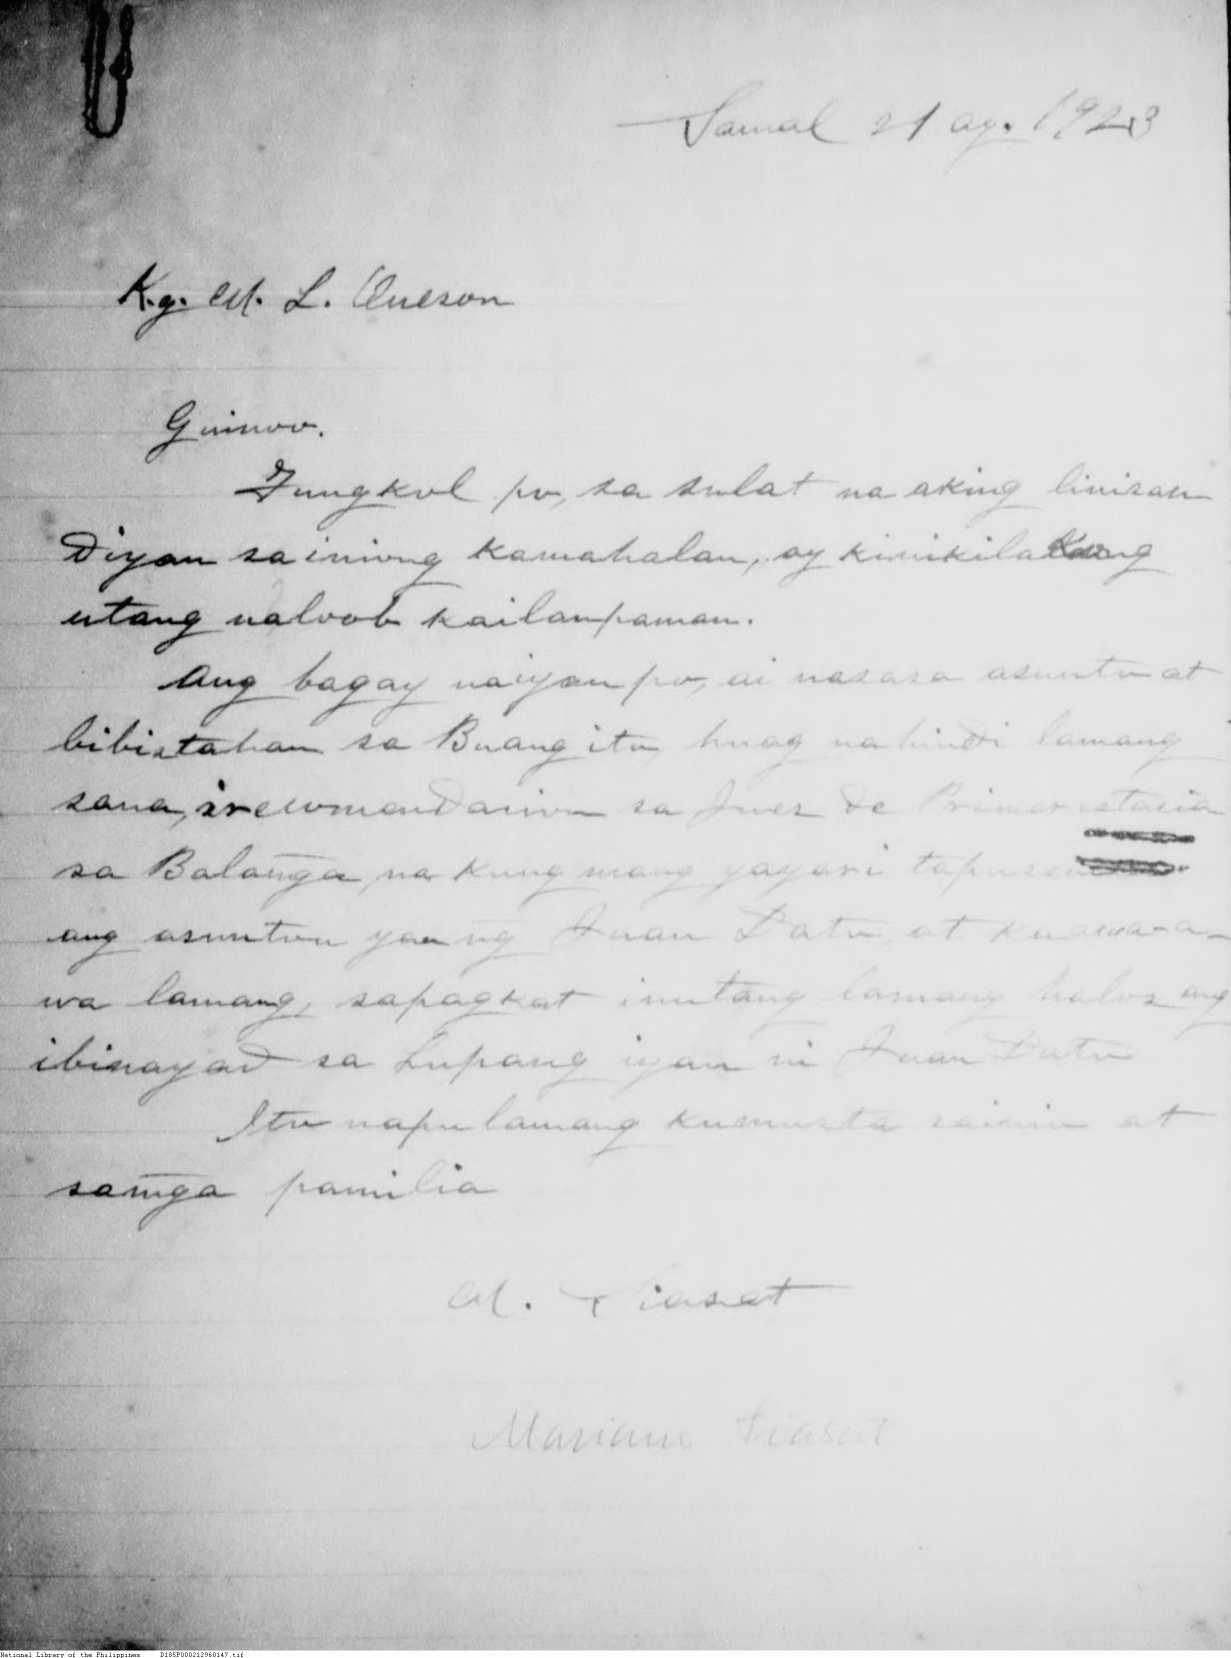 Samal 21 ag. 1923
K.g. M. L. Queson
Guinoo.
Tungkol po, sa sulat na aking linisan
Diyan sa iniong kamahalan, ay kinikilakong
utang naloob kailanpaman.
Ang bagay naiyan po, ai nasasa asunto at
bibistahan sa Buang ito, huag na hindi lamang
sana, irecomendasion sa Juez de Primer estacia
sa Balan̄ga, na kung mang yayari tapusin
ang asuntou yaa ng Juan Datu, at kaawa-a-
wa lamang, sapagkat inutang lamang halos ang
ibinayad sa Lupang iyan ni Juan Datu
Ito napu lamang kumusta sainio at
sam̄ga pamilia
M. Siasat
Mariano Siasat
National Library of the Philippines D185P000212960147.tif